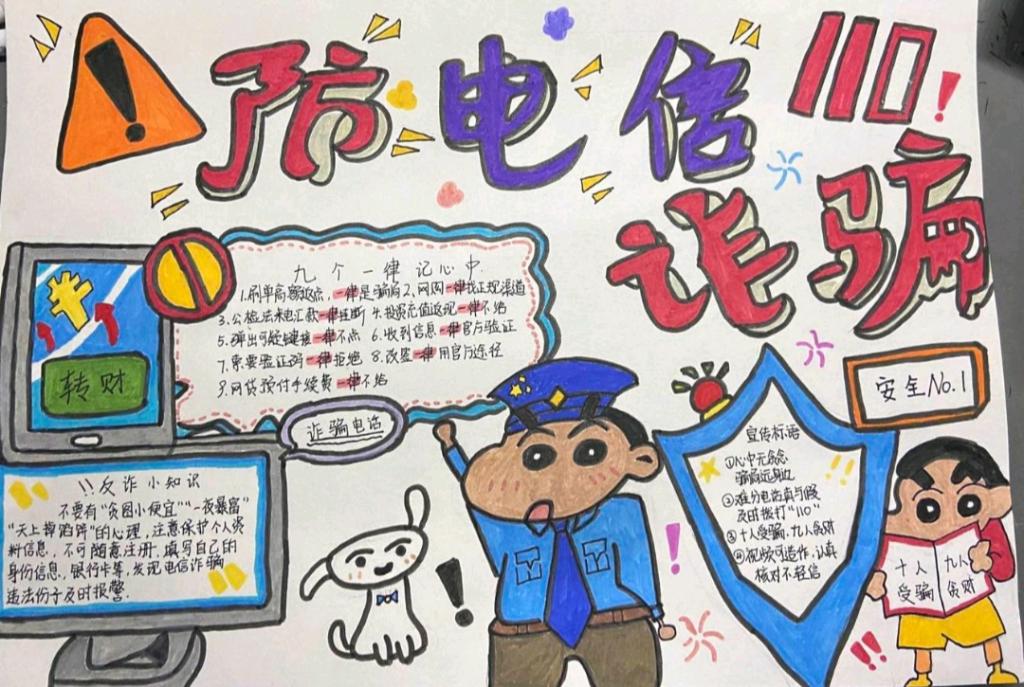 防电信
110!
诈骗
转财
九个一律记心中
1.刷单高额返点,一律是骗局 2.网购一律找正规渠道
3.公检法来电汇款一律挂断 4.投资充值返现一律不给
5.弹出可疑链接一律不点 6.收到信息一律官方验证
7.索要验证码一律拒绝 8.改签一律用官方途径
9.网贷预付手续费一律不给
诈骗电话
安全No.1
!!反诈小知识
不要有“贪图小便宜”“一夜暴富”
“天上掉馅饼”的心理,注意保护个人资
料信息,不可随意注册,填写自己的
身份信息,银行卡等,发现电信诈骗
违法份子及时报警.
宣传标语
①心中无贪念
骗局远身边
②难分电话真与假
及时拨打“110”
③十人受骗,九人贪财
④视频可造作,认真
核对不轻信
十人 九人
受骗 贪财